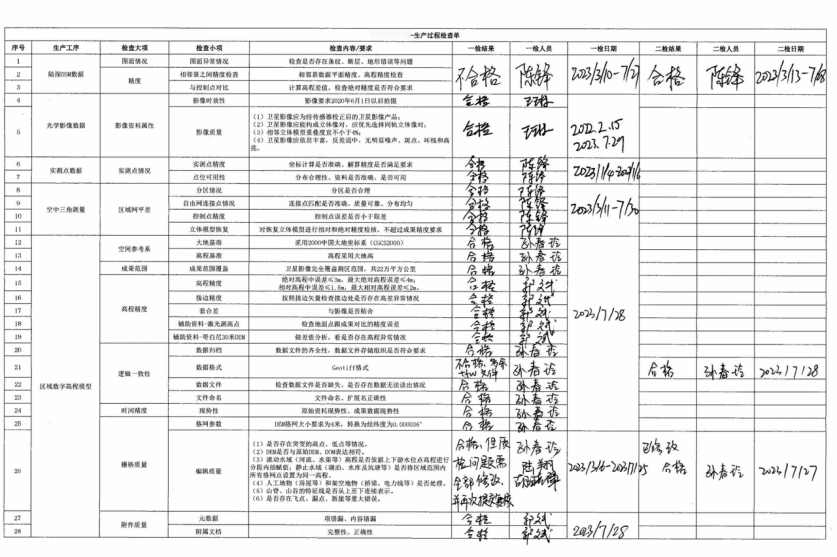 一生产过程检查单
序号 生产工序 检查大项 检查小项 检查内容/要求 一检结果 一检人员 一检日期 二检结果 二检人员 二检日期
1 图面情况 图面异常情况 检查是否存在条纹、断层、地形错误等问题
2 陆探DSM数据 精度 相邻景之间精度检查 相邻景数据平面精度、高程精度检查 不合格 陈锋 2023/3/10-7/27 合格 陈锋 2023/3/13-7/28
3 与控制点对比 计算高程差值,检查绝对精度是否符合要求
4 影像时效性 影像要求2020年6月1日以后拍摄 合格
5 光学影像数据 影像资料属性 影像质量 (1)卫星影像应为经传感器校正后的卫星影像产品; 合格 2022.2.15
(2)卫星影像应能构成立体像对,应优先选择同轨立体像对; 2023.7.29
(3)相邻立体模型重叠度宜不小于4%;
(4)卫星影像应信息丰富,反差适中,无明显噪声、斑点、坏线和高亮。
6 实测点数据 实测点情况 实测点精度 坐标计算是否准确、解算精度是否满足要求 合格 陈锋
7 点位可用性 分布合理性、资料是否准确、是否可用 合格 陈锋
8 空中三角测量 区域网平差 分区情况 分区是否合理 合格 陈锋
9 自由网连接点情况 连接点匹配是否准确、质量可靠、分布均匀 合格 陈锋 2023/3/11-7/30
10 控制点精度 控制点误差是否小于限差 合格 陈锋
11 立体模型恢复 对恢复立体模型进行相对和绝对精度检核,不超过成果精度要求 合格 陈锋
12 区域数字高程模型 空间参考系 大地基准 采用2000中国大地坐标系(CGCS2000) 合格
13 高程基准 高程采用大地高 合格
14 成果范围 成果范围覆盖 卫星影像完全覆盖测区范围,共22万平方公里 合格
15 高程精度 高程精度 绝对高程中误差≤3m,最大绝对高程误差≤4m; 合格
相对高程中误差≤1.5m,最大相对高程误差≤2m。
16 接边精度 按照接边矢量检查接边处是否存在高差异常情况 合格
17 套合差 与影像是否贴合 合格 2023/7/28
18 辅助资料-激光测高点 检查地面点跟成果对比的精度误差 合格
19 辅助资料-哥白尼30米DEM 做差值分析,看是否存在高程异常情况 合格
20 逻辑一致性 数据归档 数据文件的齐全性,数据文件存储组织是否符合要求 合格
21 数据格式 Geotiff格式 不合格, tfw文件 合格 2023/7/28
22 数据文件 检查数据文件是否缺失、是否存在数据无法读出情况 合格
23 文件命名 文件命名、扩展名正确性 合格
24 时间精度 现势性 原始资料现势性、成果数据现势性 合格
25 栅格质量 格网参数 DEM格网大小要求为4米,转换为经纬度为0.000036° 合格
26 编辑质量 (1)是否存在突变的高点、低点等情况。 合格,但质检问题需全部修改,并再次提交 陆翔 2023/3/6-2023/7/25 已修改 合格 2023/7/27
(2)DEM是否与原始DEM、DOM表达相符。
(3)流动水域(河流、水渠等)高程是否依据上下游水位点高程进行分段内插赋值;静止水域(湖泊、水库及坑塘等)是否将区域范围内所有格网点设置为同一高程。
(4)人工地物(房屋等)和架空地物(桥梁、电力线等)是否处理。
(5)山脊、山谷的特征线是否从上至下连续表示。
(6)是否存在飞点、漏点、断崖等重大错误。
27 附件质量 元数据 项错漏、内容错漏 合格
28 附属文档 完整性、正确性 合格 2023/7/28